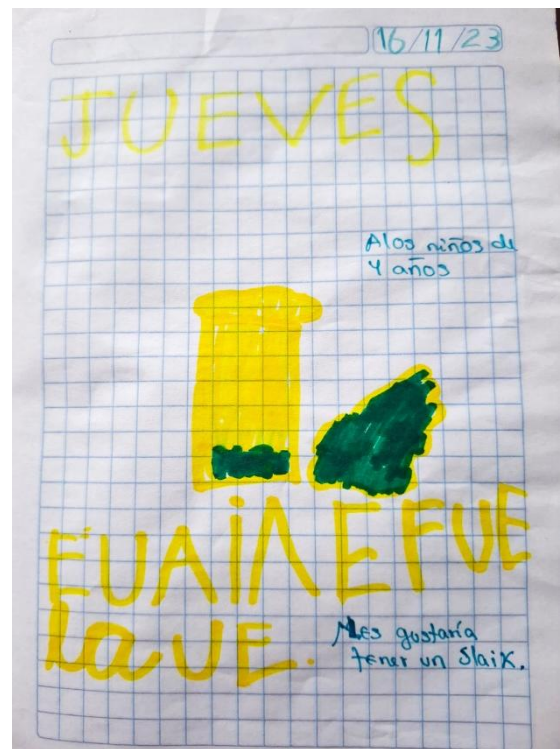 16/11/23
JUEVES
Alos niños de
4 años
FUAiNE FUE
la UE.
Les gustaría
tener un Slaik.